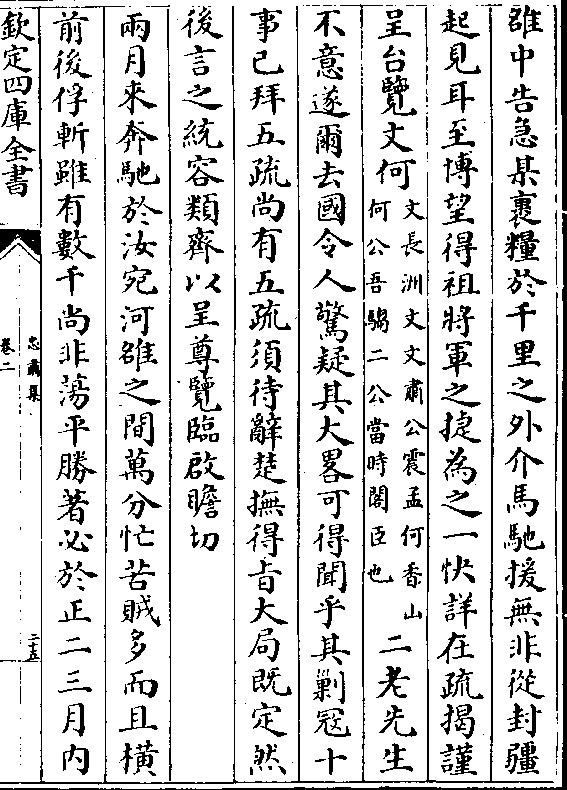 雒中告急某裹糧於千里之外介馬馳援無非從封疆
起見耳至博望得祖將軍之捷為之一快詳在疏揭謹
呈台覽文何
文長洲文文肅公震孟何香山
何公吾騶二公當時閣臣也
二老先生
不意遂爾去國令人驚疑其大畧可得聞乎其剿冦十
事已拜五疏尚有五疏須待辭楚撫得㫖大局既定然
後言之統容類齊以呈尊覽臨啟瞻切
兩月來奔馳於汝宛河雒之間萬分忙苦賊多而且橫
前後俘斬雖有數千尚非蕩平勝著必於正二三月內
欽定四庫全書
忠肅集
卷二
二十五